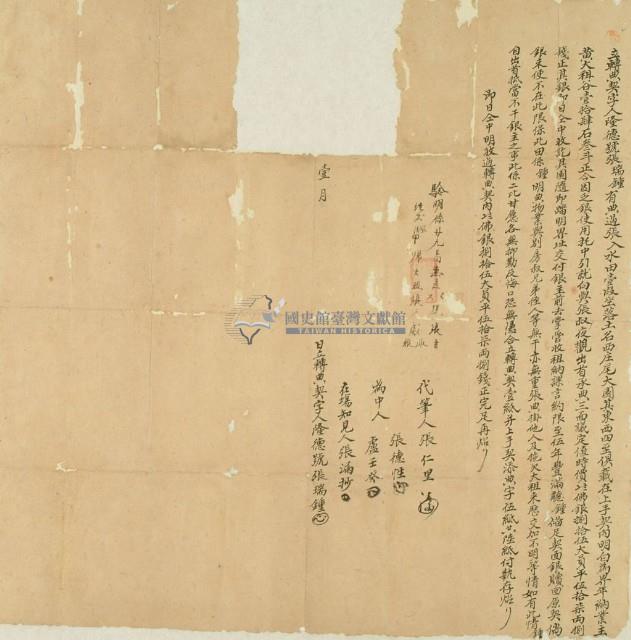 立轉典契字人隆德號張瑞鐘有典過張入水田壹段坐落土名西庄尾大圳其東西四至俱載在上手契內明白為界年納業主
黃大租谷壹拾肆石叁斗正今因乏銀使用托中引就向與張叔夜觀出首承典三面議定值時價以佛銀捌拾伍大員平伍拾柒兩捌
錢正其銀即日仝中收訖其園隨即踏明界址交付銀主前去掌管收租納課言約限至伍年豐滿聽鐘備足契面銀贖回原契倘
銀未便不在此限保此田係鐘明典物業與別房叔兄弟侄人等無干亦無重張典掛他人及拖欠大租來歷交加不明等情如有此情鐘
自出首抵當不干銀主之事此係二比甘愿各無抑勒反悔口恐無憑合立轉典契壹紙并上手契添典字伍紙共陸紙付執存炤
即日仝中明收過轉典契內以佛銀捌拾伍大員平伍拾柒兩捌錢正完足再炤
驗明係廿九
代筆人 張仁里
張德性
為中人 盧壬癸
在場知見人張滿抄
壹月 日立轉典契字人隆德號張瑞鐘
國史館臺灣文獻館
TAIWAN HISTORICA